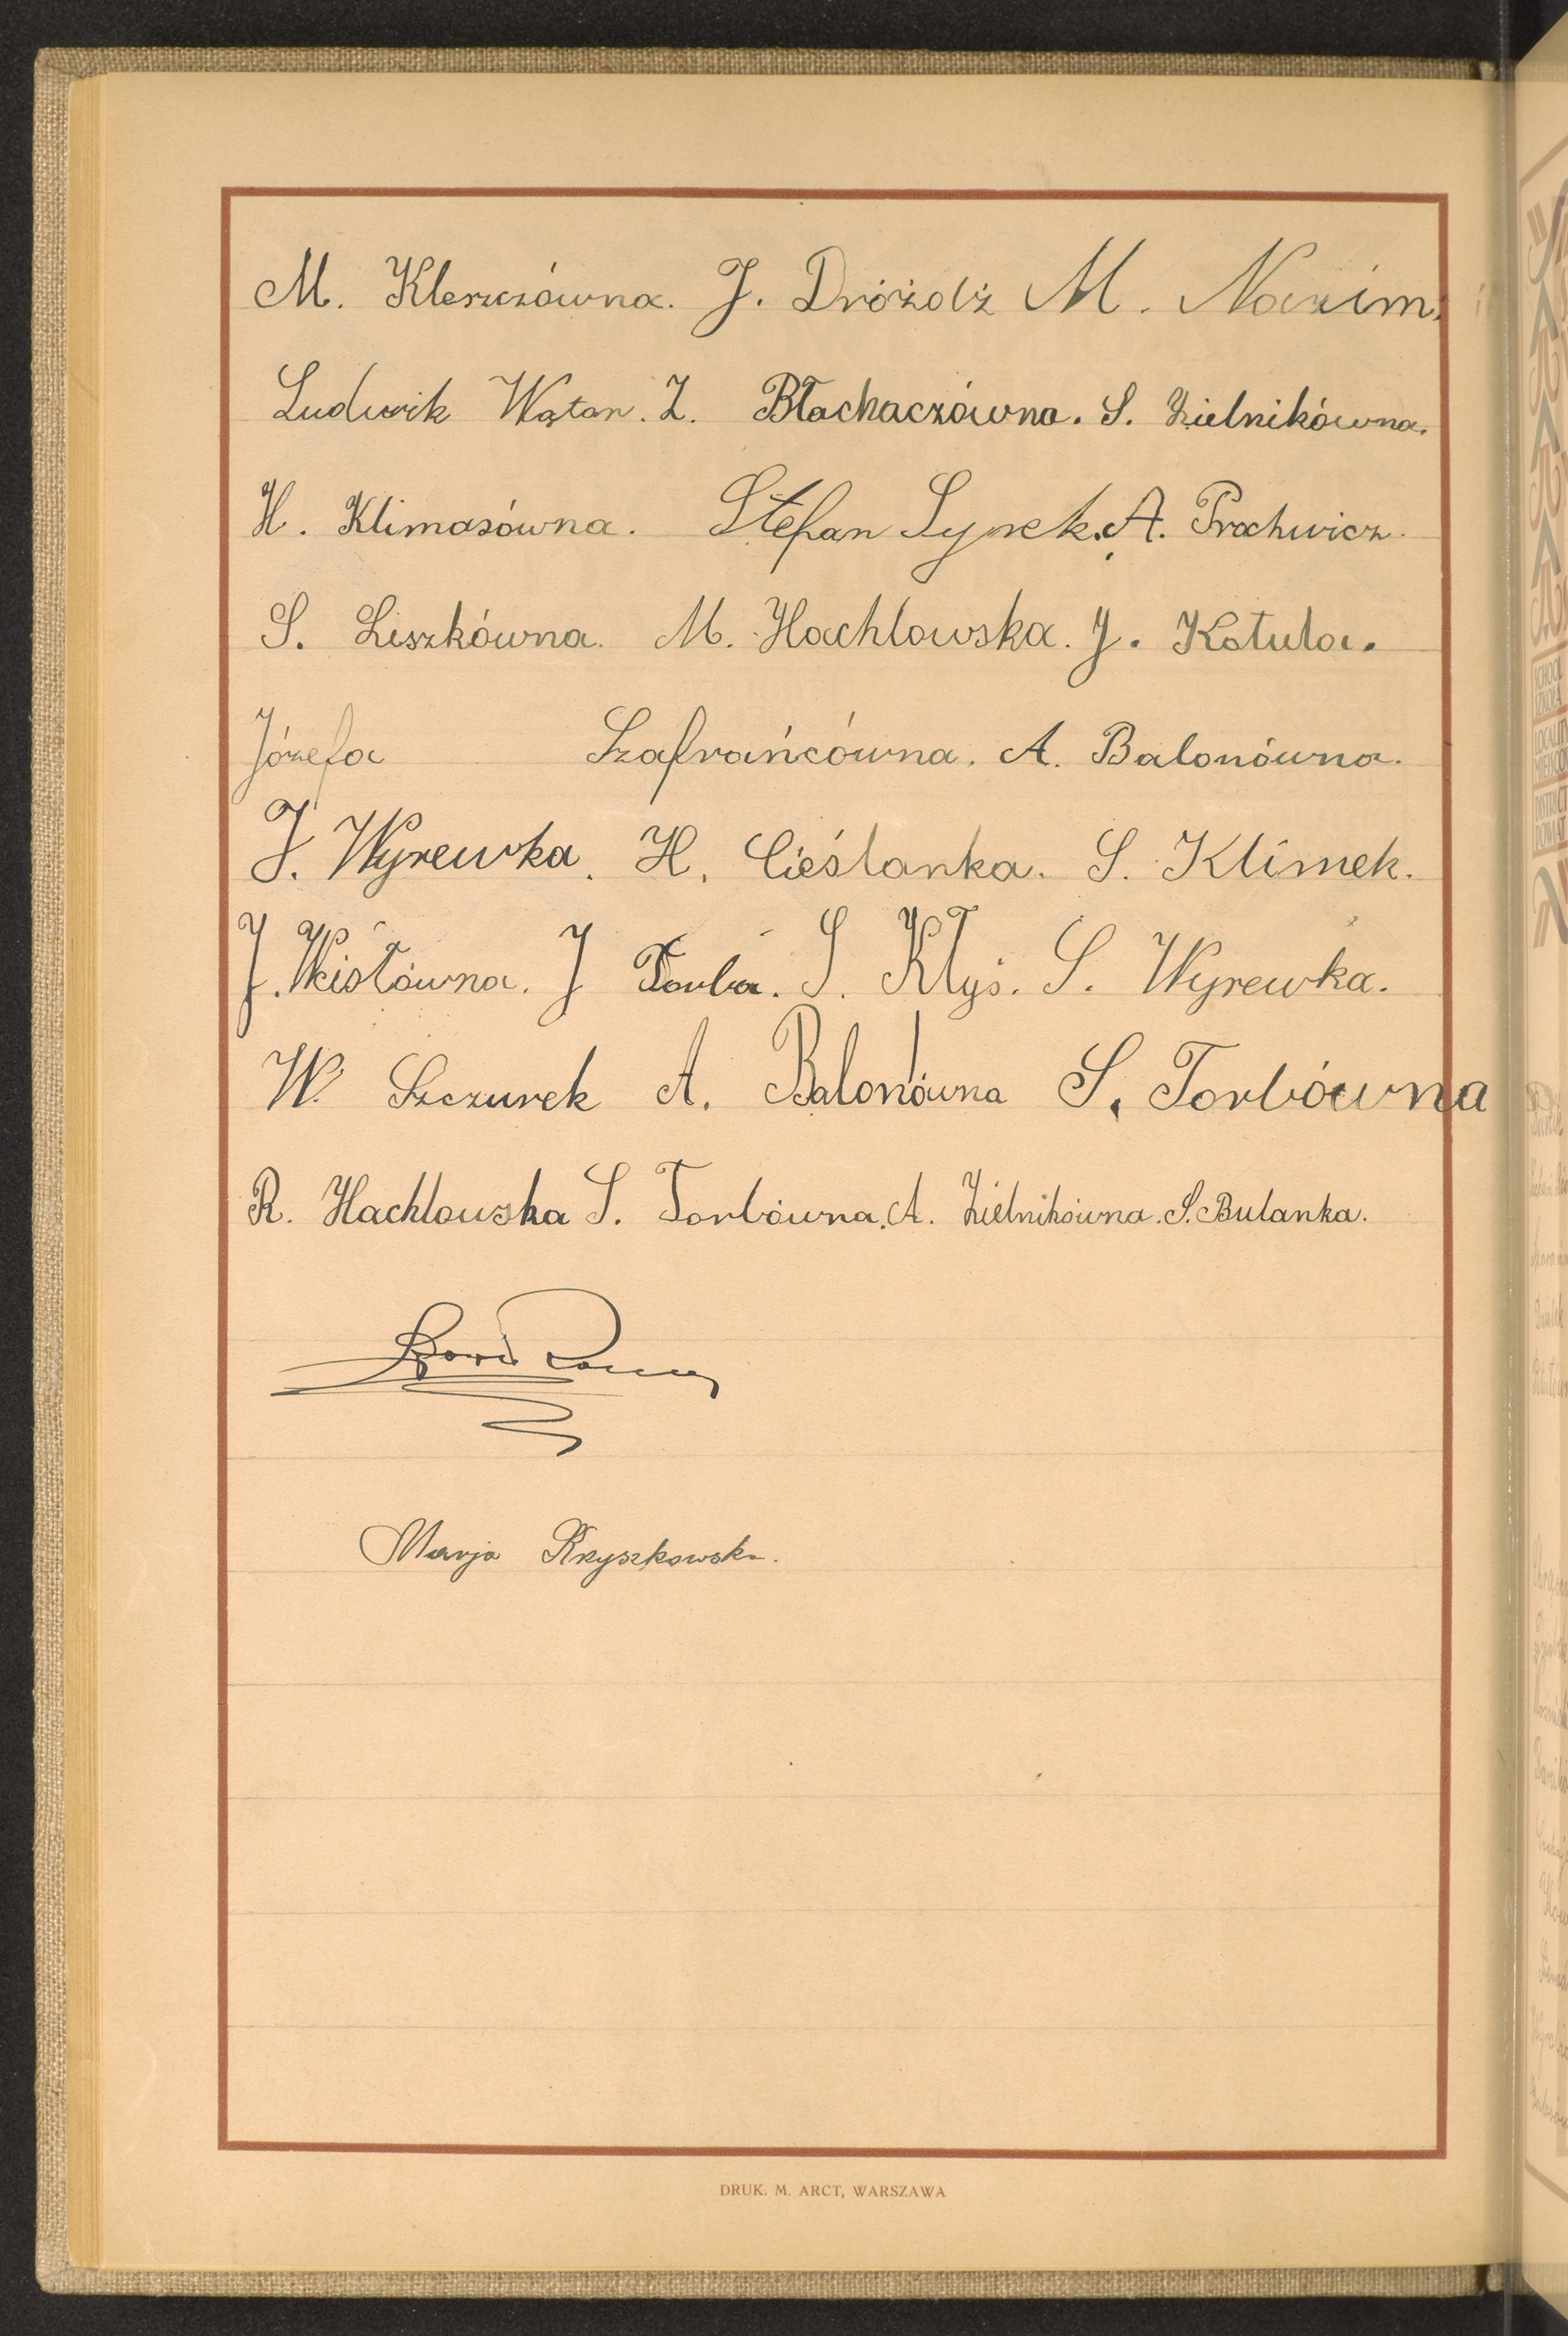 M. Kleszczówna. J. Dróżdż M. Naxim.
Ludwik Wątan. Z. Błachaczówna. S. Zielnikówna.
H. Klimasówna. Stefan Syrek. A. Prochwicz.
S. Liszkówna. M. Hachlowska. J. Kotula.
Józefa Szafrańcówna. A. Balonówna.
J. Wyrewka. H. Cieślanka. S. Klimek.
J. Wisłówna. J Torba. S. Kłyś. S. Wyrewka.
W. Szczurek A. Balonówna S. Torbówna
R. Hachlowska S. Torbówna. A. Zielnikówna. S. Bulanka.
Marja Kryszkowska.
DRUK. M. ARCT, WARSZAWA